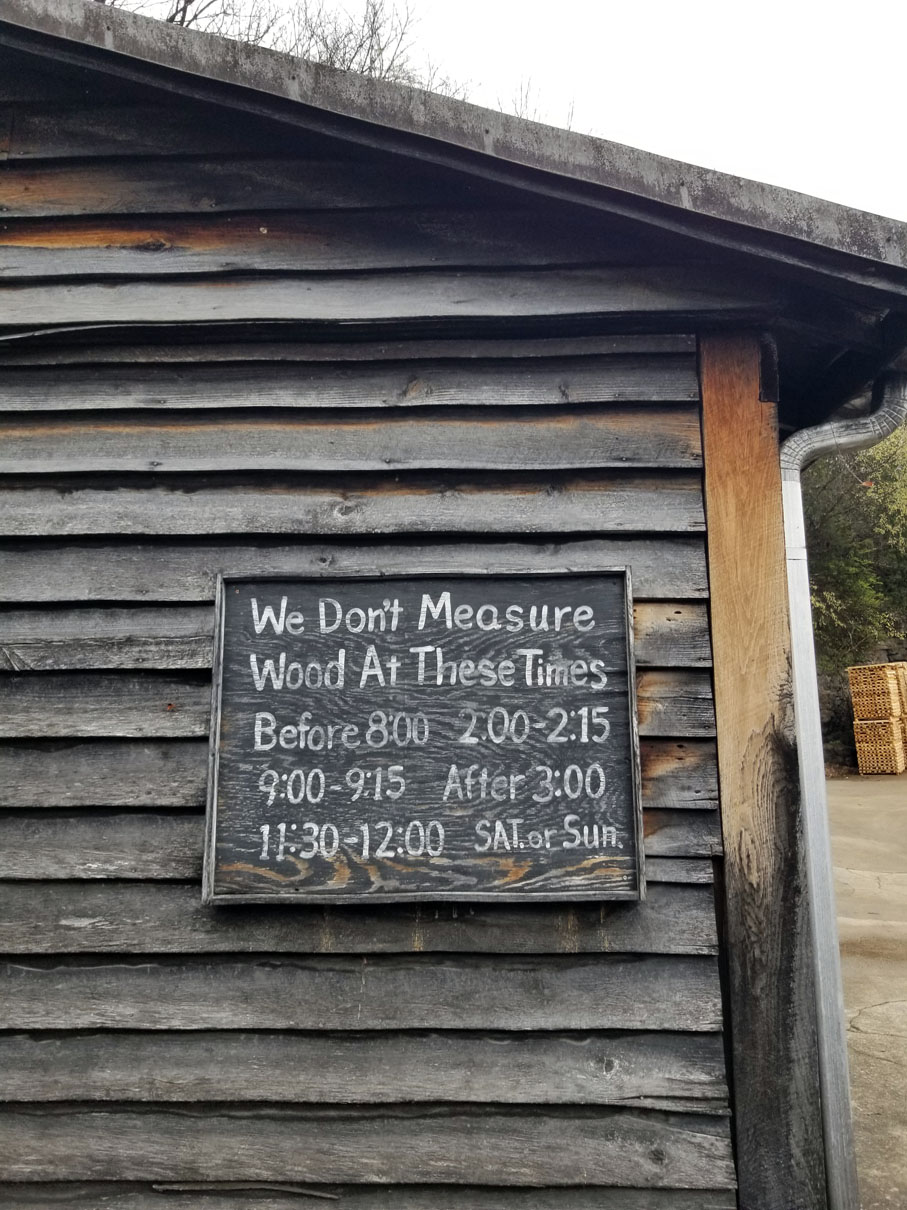 We Don't Measure
Wood At These Times
Before 8:00 2:00-2:15
9:00-9:15 After 3:00
11:30-12:00 SAT. or Sun.